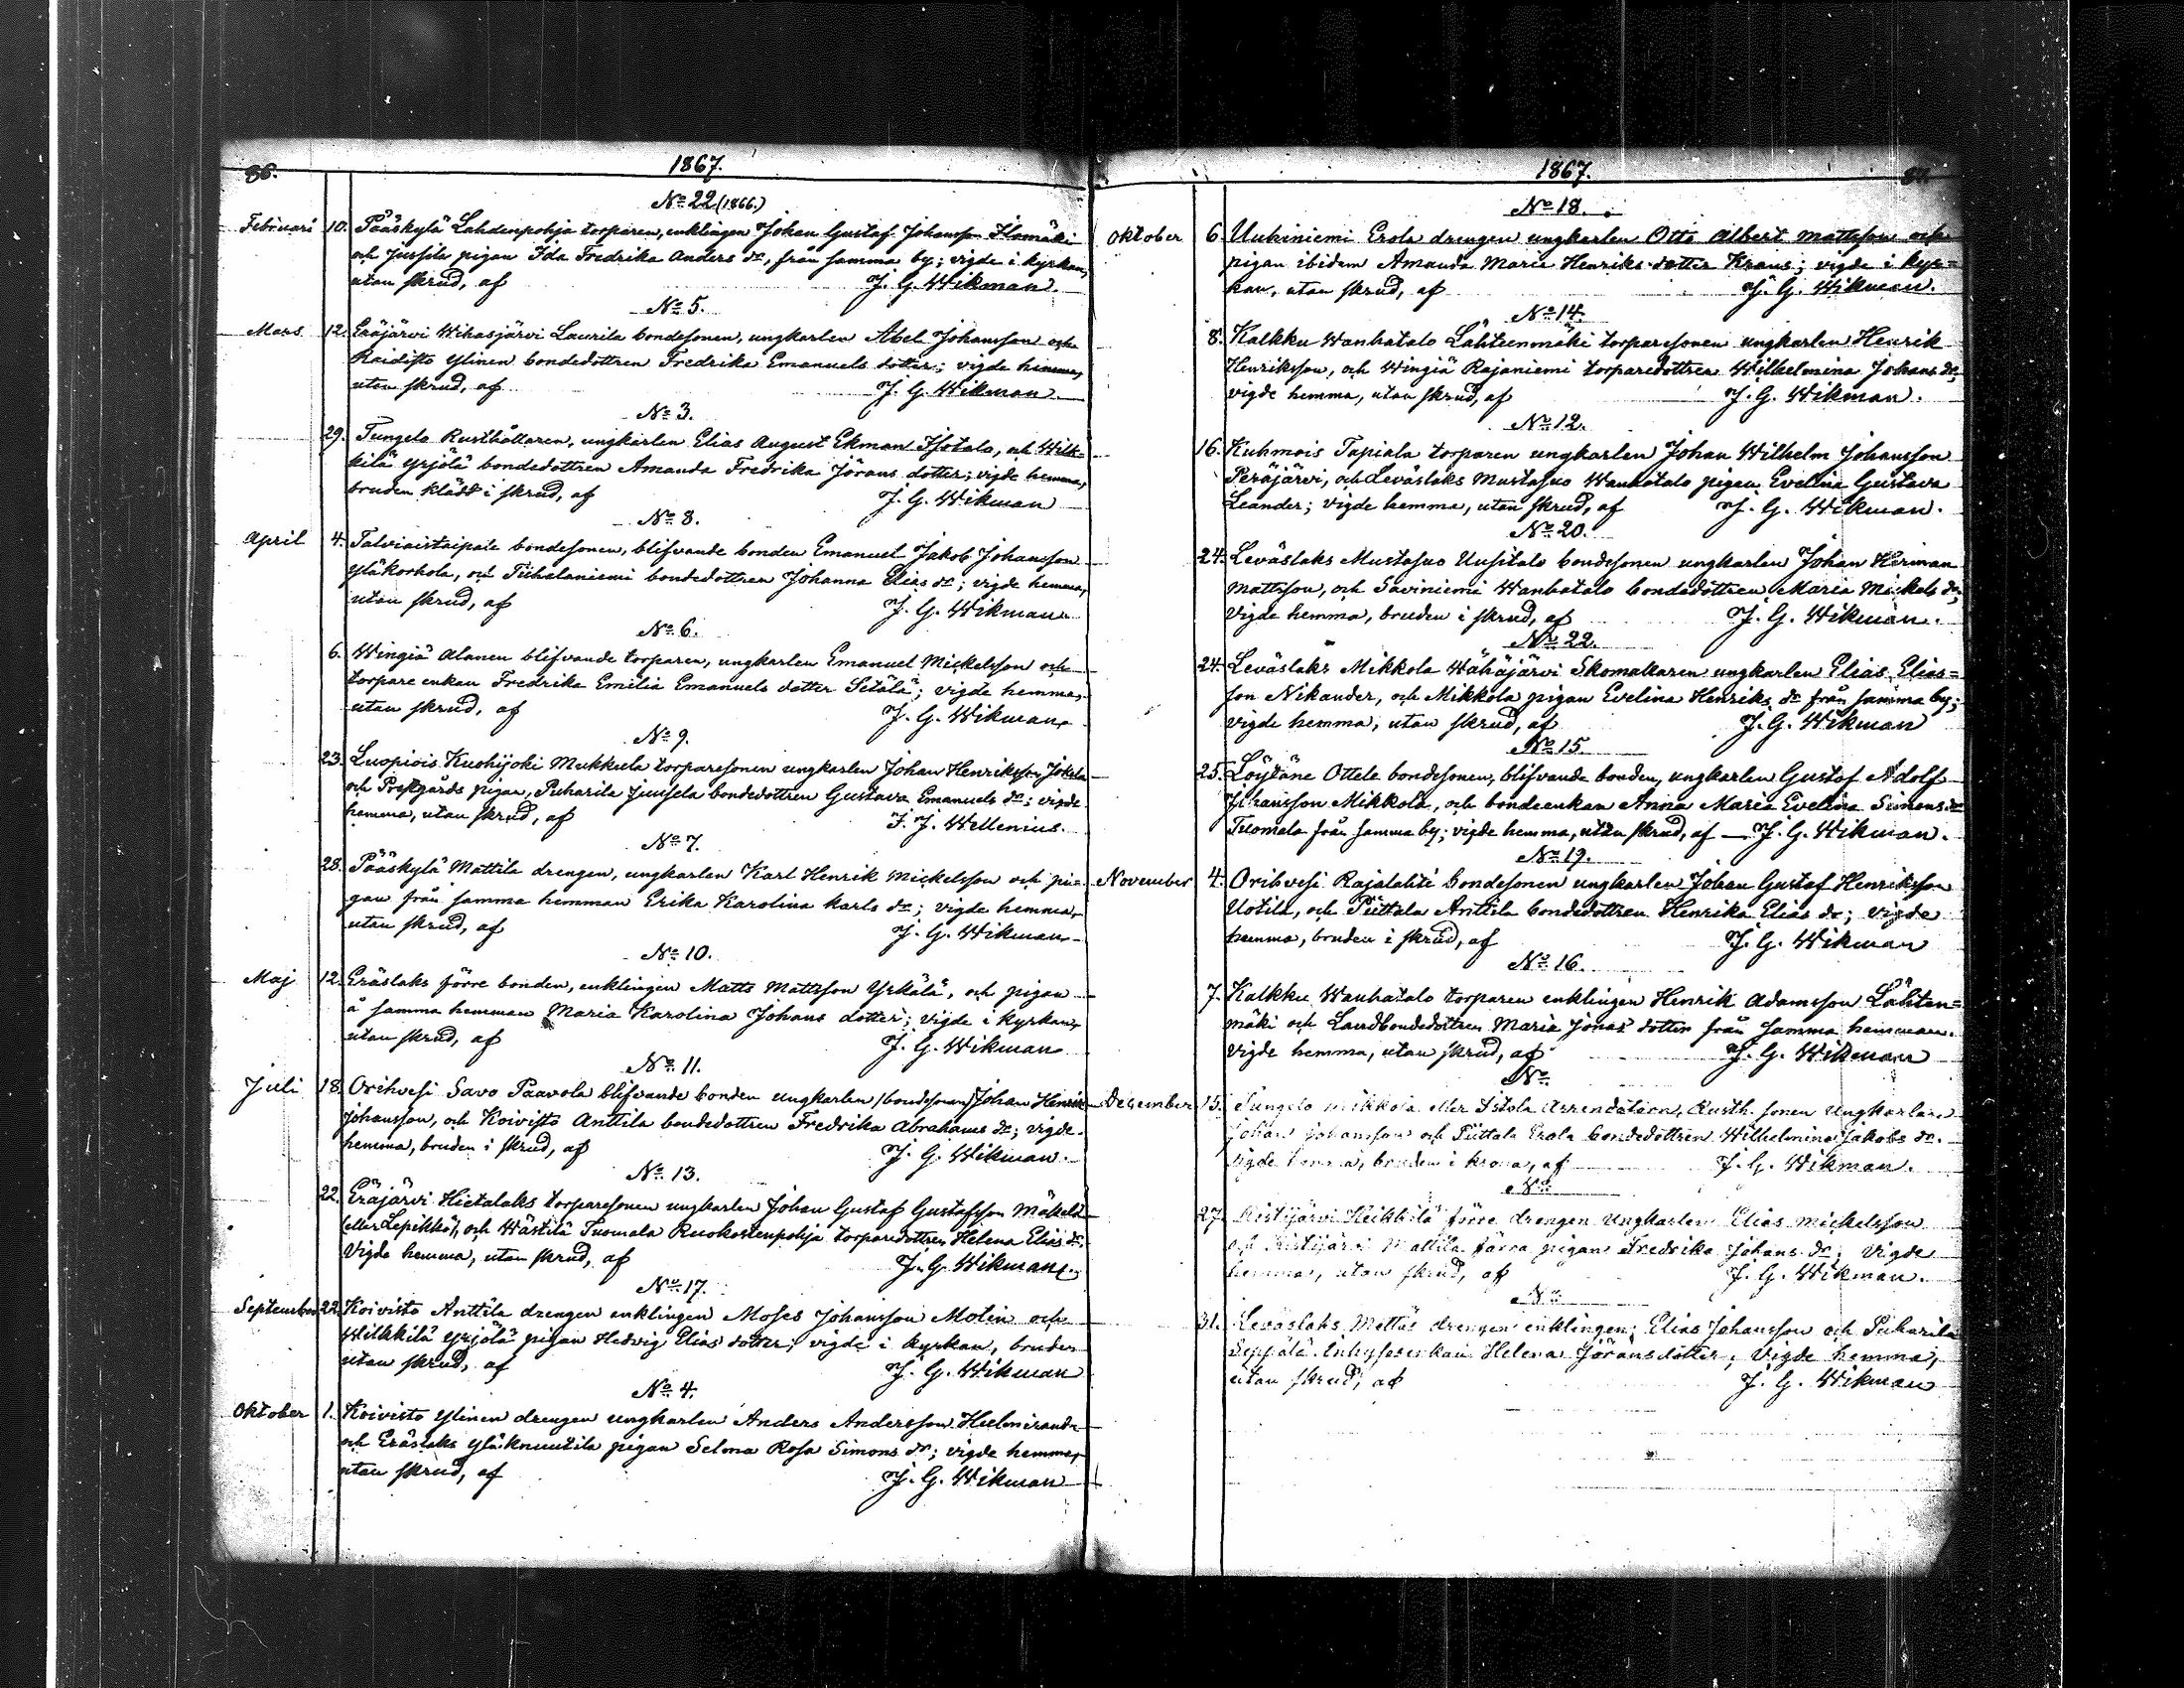 86.
1867.
No 22 (1866.)
Februari 10. Pääskylä Lahdenpohja torparen, enklingen Johan Gustaf Johansson Ilomäki
och Jussila pigan Ida Fredrika Anders dr, från samma by; vigde i kyrkan,
utan skrud, af J. G. Wikman.
No 5.
Mars 12. Eräjärvi Wihasjärvi Laurila bondesonen, ungkarlen Abel Johansson och
Raidisto Ylinen bondedottren Fredrika Emanuels dotter; vigde hemma,
utan skrud, af J. G. Wikman.
No 3.
29. Tungelo Rusthållaren, ungkarlen Elias August Ekman Isotalo, och Wilk-
kilä Yrjölä bondedottren Amanda Fredrika Jörans dotter; vigde hemma,
bruden klädd i skrud, af J. G. Wikman
No 8.
April 4. Talviaistaipale bondesonen, blifvande bonden Emanuel Jakob Johansson
Yläkorhola, och Tiihalaniemi bondedottren Johanna Elias dr; vigde hemma,
utan skrud, af J. G. Wikman
No 6.
6. Wingiä Alanen blifvande torparen, ungkarlen Emanuel Mickelsson och
torpare enkan Fredrika Emilia Emanuels dotter Setälä; vigde hemma,
utan skrud, af J. G. Wikman
No 9.
23. Luopiois Kuohijoki Mukkula torparesonen ungkarlen Johan Henriksson Jokela
och Prestgårds pigan, Puharila Juusela bondedottren Gustava Emanuels dr; vigde
hemma, utan skrud, af F. J. Wellenius.
No 7.
28. Pääskylä Mattila drengen, ungkarlen Karl Henrik Mickelsson och pi-
gan från samma hemman Erika Karolina Karls dr; vigde hemma,
utan skrud, af J. G. Wikman
No 10.
Maj 12. Eräslaks förre bonden, enklingen Matts Mattsson Yrkälä, och pigan
å samma hemman Maria Karolina Johans dotter; vigde i kyrkan,
utan skrud, af J. G. Wikman
No 11.
Juli 18. Orihvesi Savo Paavola blifvande bonden ungkarlen /bondesonen/ Johan Henrik
Johansson, och Koivisto Anttila bondedottren Fredrika Abrahams dr; vigde
hemma, bruden i skrud, af J. G. Wikman.
No 13.
22. Eräjärvi Hietalaks torparesonen ungkarlen Johan Gustaf Gustafsson Mäkelä
(eller Lepikkö), och Wästilä Tuomala Ruokostenpohja torparedottren Helena Elias dr,
vigde hemma, utan skrud, af J. G. Wikman.
No 17.
September 22. Koivisto Anttila drengen enklingen Moses Johansson Molin och
Wilkkilä Yrjölä pigan Hedvig Elias dotter; vigde i kyrkan, bruden
utan skrud, af J. G. Wikman
No 4.
Oktober 1. Koivisto Ylinen drengen ungkarlen Anders Andersson
och Eräslaks Yläknuutila pigan Selma Rosa Simons dr; vigde hemma,
utan skrud, af J. G. Wikman
1867.
87.
No 18.
Oktober 6. Uukiniemi Erola drengen ungkarlen Otto Albert Mattsson och
pigan ibidem Amanda Maria Henriks dotter Kraus; vigde i kyr-
kan, utan skrud, af J. G. Wikman.
No 14.
8. Kalkku Wanhatalo Lähteenmäki torparesonen ungkarlen Henrik
Henriksson, och Wingiä Rajaniemi torparedottren Wilhelmina Johans dr,
vigde hemma, utan skrud, af J. G. Wikman.
No 12.
16. Kuhmois Tapiala torparen ungkarlen Johan Wilhelm Johansson
Peräjärvi, och Leväslaks Mustasuo Wanhatalo pigan Evelina Gustava
Leander; vigde hemma, utan skrud, af J. G. Wikman.
No 20.
24. Leväslaks Mustasuo Uusitalo bondesonen ungkarlen Johan Herman
Mattsson, och Saviniemi Wanhatalo bondedottren Maria Mickels dr,
vigde hemma, bruden i skrud, af J. G. Wikman.
No 22.
24. Leväslaks Mikkola Wähäjärvi Skomakaren ungkarlen Elias Elias-
son Nikander, och Mikkola pigan Evelina Henriks dr från samma by;
vigde hemma, utan skrud, af J. G. Wikman
No 15.
25. Löytäne Ottele bondesonen, blifvande bonden, ungkarlen Gustaf Adolf
Johansson Mikkola, och bondeenkan Anna Maria Evelina Simons dr
Tuomala från samma by; vigde hemma, utan skrud, af J. G. Wikman.
No 19.
November 4. Orihvesi Rajalahti bondesonen ungkarlen Johan Gustaf Henriksson
Uotila, och Piittala Anttila bondedottren Henrika Elias dr; vigde
hemma, bruden i skrud, af J. G. Wikman
No 16.
7. Kalkku Wanhatalo torparen enklingen Henrik Adamsson Lähten-
mäki och Landbondedottren Maria Jonas dotter från samma hemman.
vigde hemma, utan skrud, af J. G. Wikman
No
December 15. Tungelo Mikkola eller Istola Arrendatorn, Rusth. sonen Ungkarlen
Johan Johansson och Piittala Erola bondedottren Wilhelmina Jakobs dr.
vigde hemma, bruden i krona, af J. G. Wikman.
No
27. Ristijärvi Heikkilä förre drengen Ungkarlen Elias Mickelsson
och Ristijärvi Mattila förra pigan Fredrika Johans dr; vigde
hemma, utan skrud, af J. G. Wikman.
No
31. Leväslaks Mattas drengen enklingen, Elias Johansson och Puharila
Seppälä Inhysesenkan Helena Jöransdotter, vigde hemma,
utan skrud, af J. G. Wikman